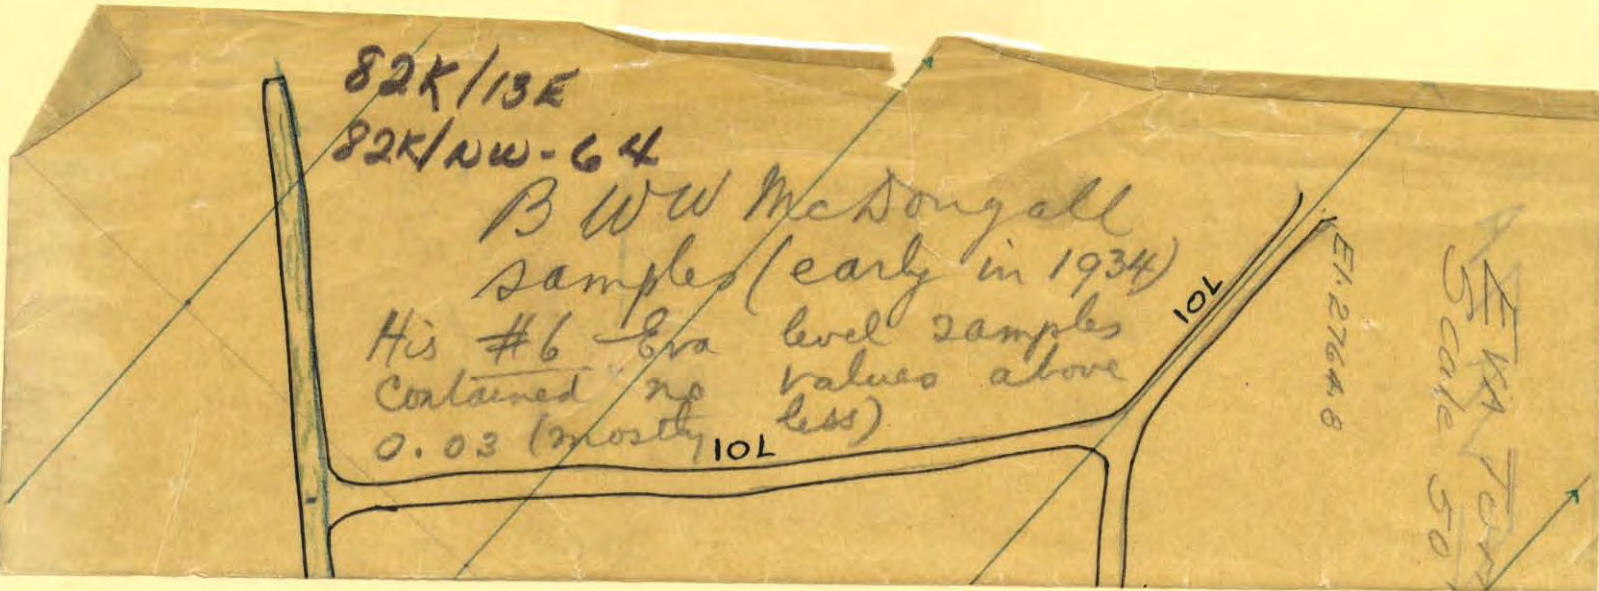 82K/13E
82K/NW-64
B WW McDougall
samples (early in 1934)
His #6 Eva level samples
Contained no values above
0.03 (mostly less)
10L
10L
El. 2764.8
Scale 50